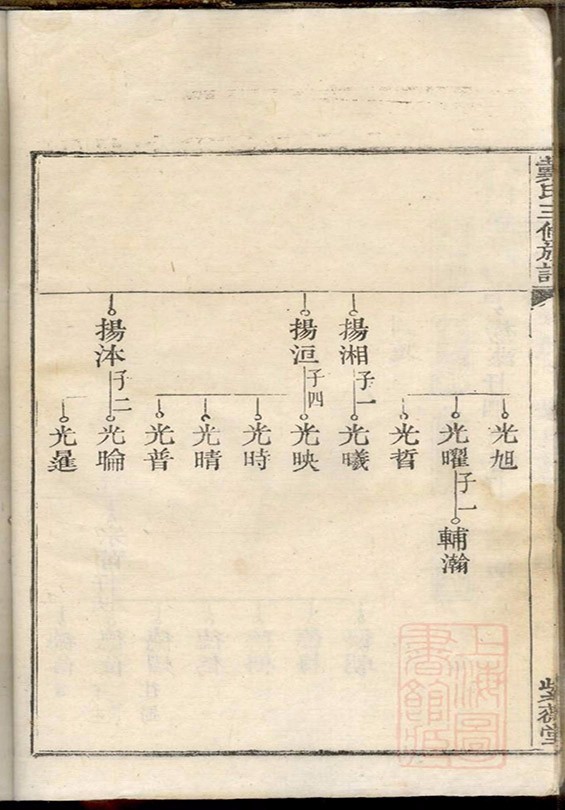 戴氏三修族譜
光旭
光曜
子一
輔瀚
光晢
揚湘
子一
光曦
揚洹
子四
光映
光時
光晴
光普
揚沐
子二
光暉
光暹
上海圖書館藏